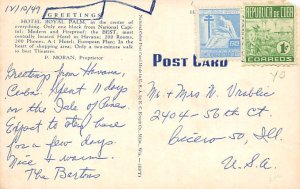 IV/10/49
GREETINGS
HOTEL ROYAL PALM, at the center
of everything. Only one block from National Capi-
tol; Modern and Fireproof; the BEST, most
centrally located Hotel in Havana. 200 Rooms,
200 Phones. A-1 Hotel; European Plan; In the
heart of shopping area; Only a two-minute walk to
best Theatres.
P. MORAN, Proprietor
POST CARD
REPUBLICA DE CUBA
CORREOS
Greetings from Havana,
Cuba. Spent 11 days
on the Isle of Pines.
Expect to stay here
for a few days.
Nice & warm.
The Bertas
Mr + Mrs N. Vrablic
2404 - 56th Ct.
Cicero 50, Ill.
U.S.A.